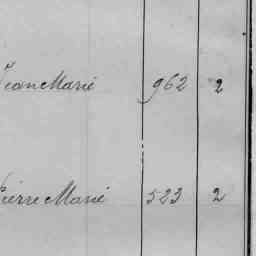 Jean Marie 962 2
Pierre Marie 523 2